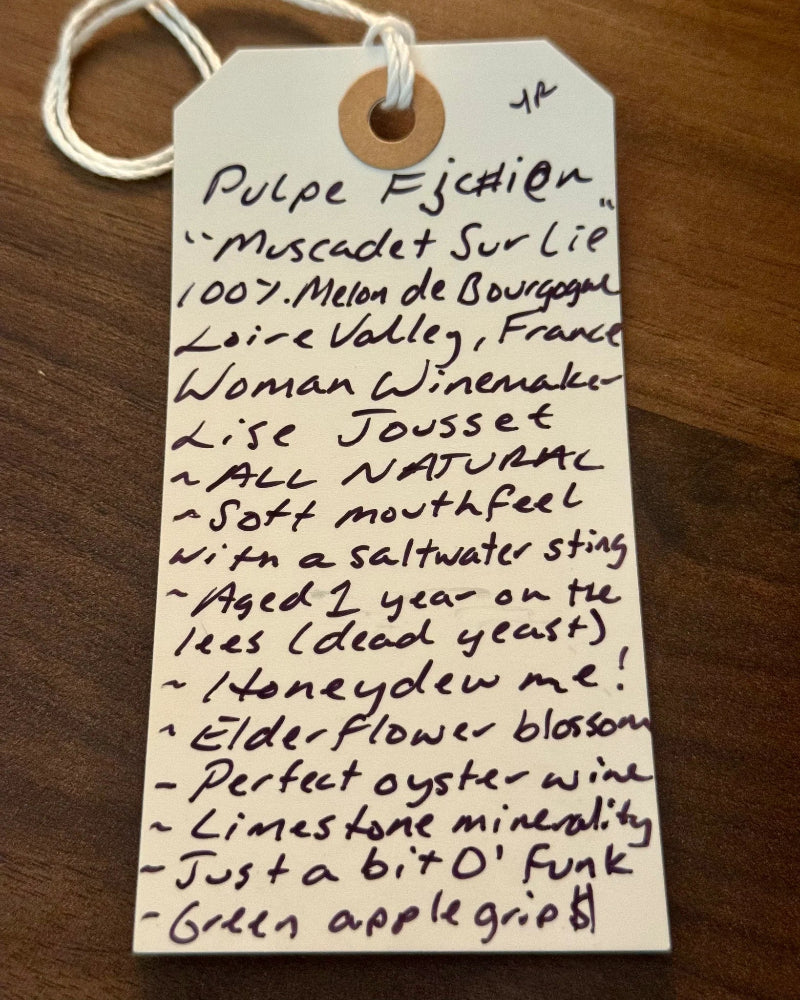 Pulpe Fjc#i@n
"Muscadet Sur Lie"
100%. Melon de Bourgogne
Loire Valley, France
Woman Winemaker
Lise Jousset
~ ALL NATURAL
~ Soft mouthfeel
with a saltwater sting
~ Aged 1 year on the
lees (dead yeast)
~ Honeydew me!
~ Elderflower blossom
- Perfect oyster wine
~ Limestone minerality
~ Just a bit O' funk
- Green apple grip